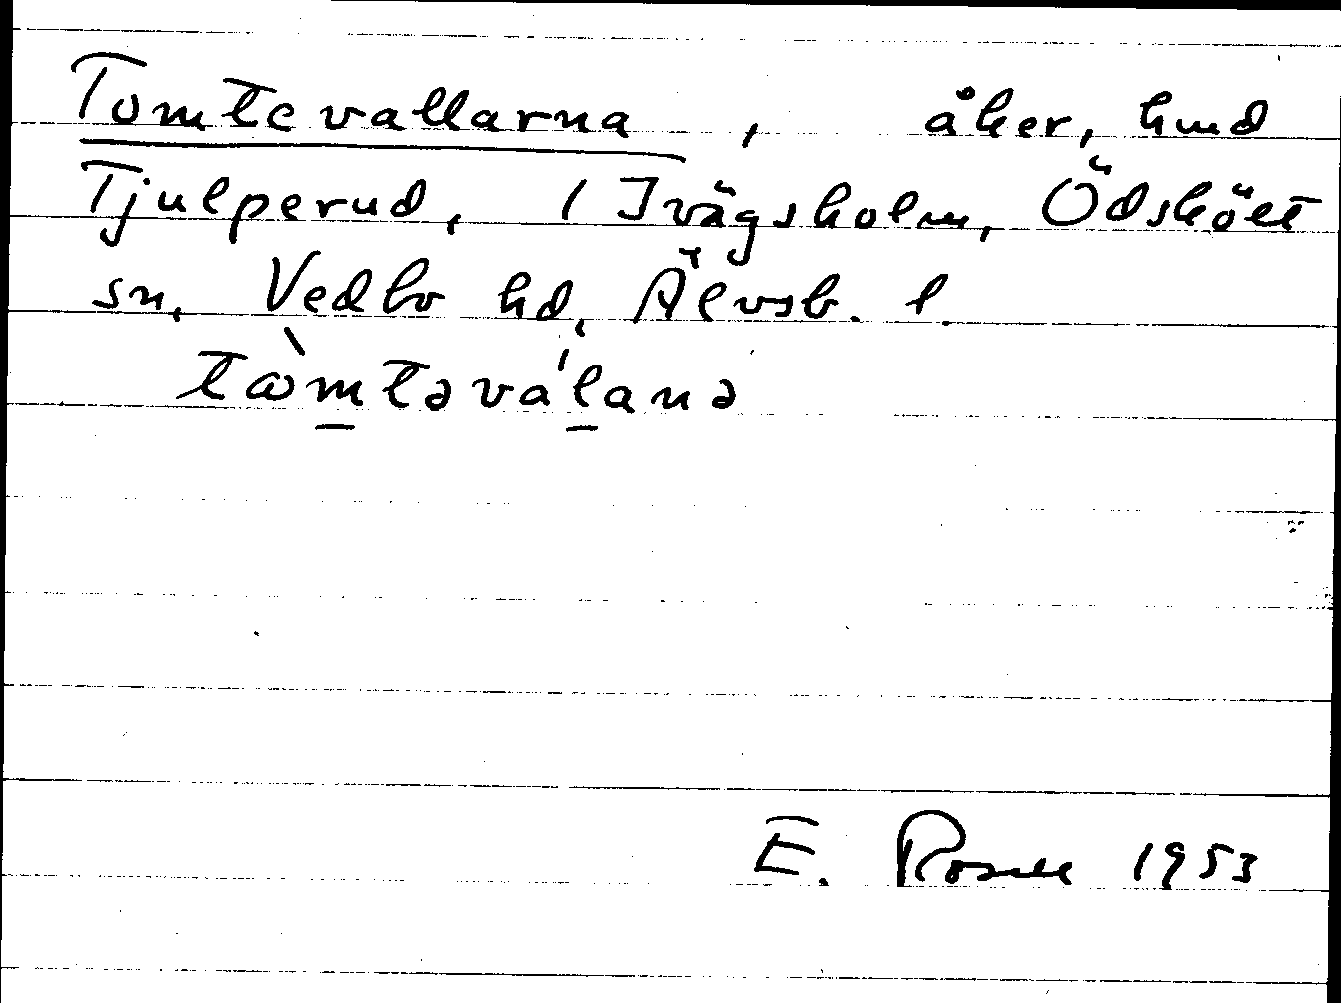 Tomtevallarna, åker, hmd
Tjulperud, 1 Ivägsholm, Ödsköllt
sn, Vedbo hd, Älvsb. l.
tɷ̀mtəváɭanə
E. Rosell 1953